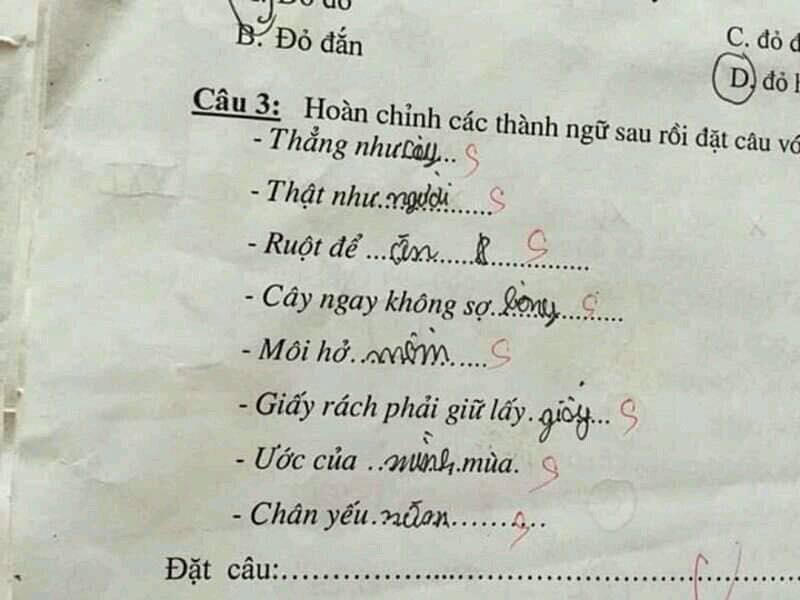 B. Đỏ đắn
C. đỏ đ
D. đỏ h
Câu 3: Hoàn chỉnh các thành ngữ sau rồi đặt câu vớ
- Thẳng như cây... S
- Thật như..người....... S
- Ruột để ...ăn............... S
- Cây ngay không sợ........... S
- Môi hở..mồm...... S
- Giấy rách phải giữ lấy.giấy... S
- Ước của ..mình.mùa. S
- Chân yếu.nắm.......... S
Đặt câu:...................................................